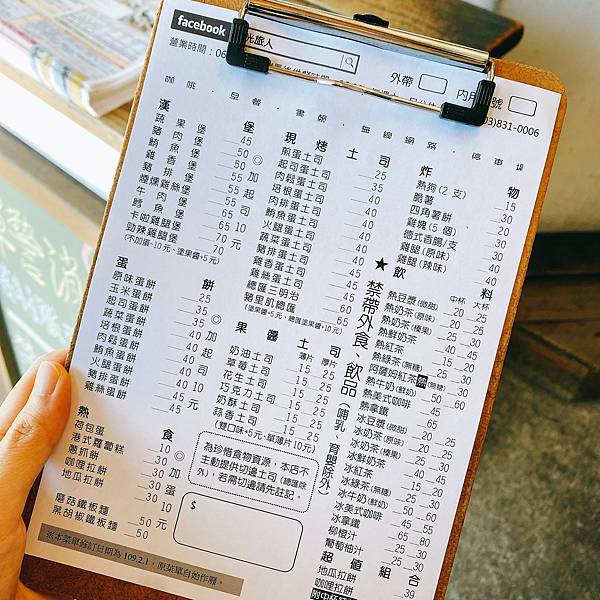 facebook
光旅人
營業時間：06
外帶
內用
號
(03)831-0006
咖啡．早餐．書報．無線網路．停車場
漢堡
◎加起司10元
蔬果堡 45
豬肉堡 50
鮪魚堡 50
雞香堡 55
豬排堡 55
煙燻雞絲堡 55
牛肉堡 65
鱈魚堡 65
卡啦雞腿堡 70
勁辣雞腿堡 70
(不加蛋-10元、塗果醬+5元)
蛋餅
◎加起司10元
原味蛋餅 25
玉米蛋餅 35
起司蛋餅 35
蔬菜蛋餅 35
培根蛋餅 40
肉鬆蛋餅 40
鮪魚蛋餅
火腿蛋餅
豬排蛋餅 45
雞絲蛋餅 45
熱食
◎加蛋10元
荷包蛋 10
港式蘿蔔糕 30
蔥抓餅 30
咖哩拉餅 30
地瓜拉餅 30
蘑菇鐵板麵 50
黑胡椒鐵板麵 50
※本菜單修訂日期為 109.2.1，原菜單自始作廢。
現烤土司
煎蛋土司 25
起司蛋土司 35
肉鬆蛋土司 40
培根蛋土司 40
鮪魚蛋土司 40
火腿蛋土司 40
蔬菜蛋土司
豬排蛋土司
雞香蛋土司
雞絲蛋土司
總匯三明治 60
豬里肌總匯 65
(塗果醬+5元、總匯塗果醬+10元)
果醬土司
薄片 厚片
奶油土司 15 25
草莓土司 15 25
花生土司 15 25
巧克力土司 15 25
奶酥土司 15 25
蒜香土司 15 25
(雙口味+5元、單薄片10元)
為珍惜食物資源，本店不
主動提供切邊土司（總匯除
外），若需切邊請先註記。
$
★禁帶外食、飲品（哺乳、育嬰除外）
炸物
熱狗(2支) 15
脆薯 30
四角薯餅 20
雞塊(5個) 30
德式香腸/支 30
雞腿(原味) 40
雞腿(辣味) 40
飲料
中杯 大杯
熱豆漿(微甜) 20 25
熱奶茶(原味) 20 25
熱奶茶(榛果) 25 30
熱鮮奶茶
熱紅茶
熱綠茶(無糖)
阿薩姆紅茶熱(無糖) 30
熱牛奶(鮮奶) 50 60
熱美式咖啡
熱拿鐵
冰豆漿(微甜) 20 25
冰奶茶(原味) 20 25
冰奶茶(榛果)
冰鮮奶茶
冰紅茶
冰綠茶(無糖) 25
冰牛奶(鮮奶) 50
冰美式咖啡 45 55
冰拿鐵 55
柳橙汁 25 30
葡萄柚汁 25 30
超值組合
地瓜拉餅 39
咖哩拉餅
附中杯